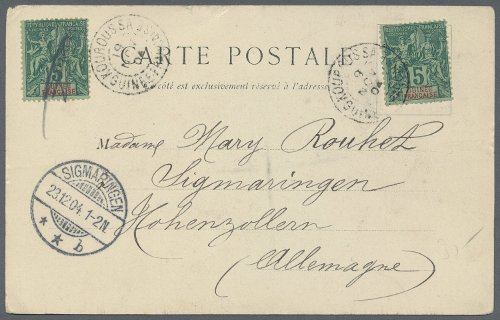 CARTE POSTALE
Ce côté est exclusivement réservé à l'adresse.
Madame Mary Rouhet
Sigmaringen
Hohenzollern
(Allemagne)
SIGMARINGEN
23.12.04. 1-2N.
* * b
KOUROUSSA
KOUROUSSA
5
5